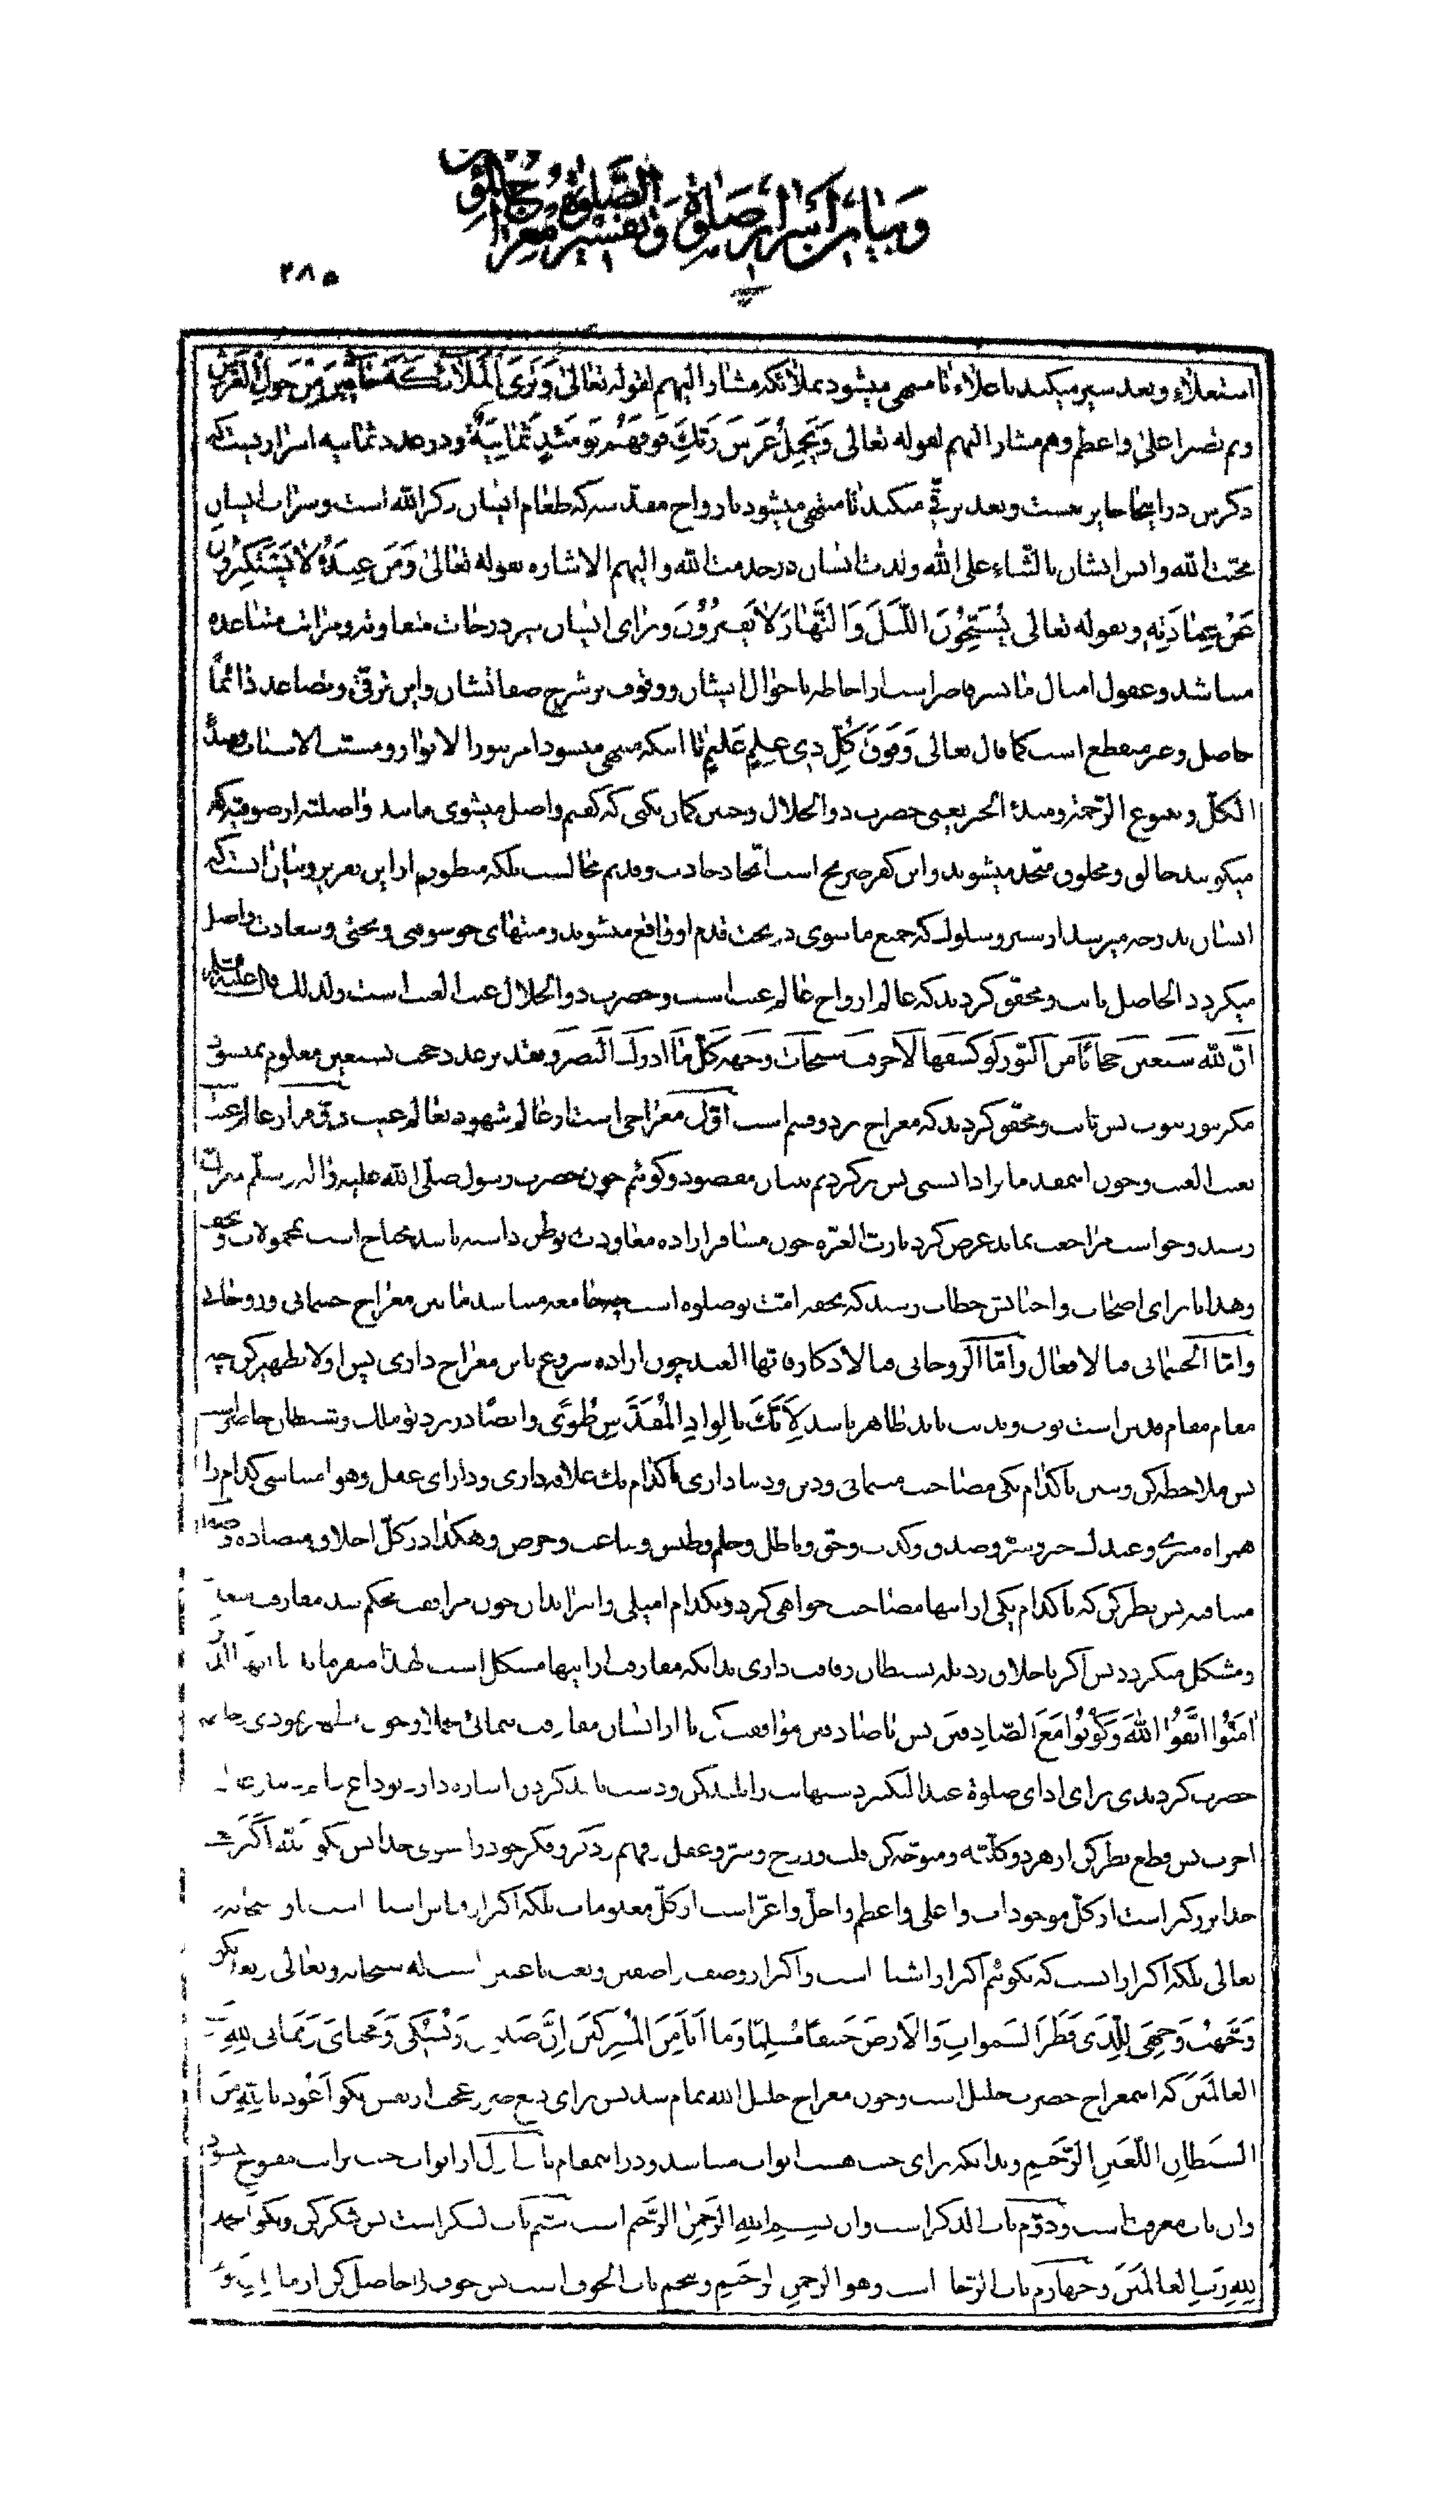 و بیان اسرار صلوة و تفسیر معراج
الصلوة
۲۸۵
استعلاء و بعد سیر میکند باعلاء تا منتهی میشود بملائکه مشار الیهم لقوله تعالی وَتَرَى الْمَلَائِكَةَ حَافِّينَ مِنْ حَوْلِ الْعَرْشِ
اعلی و اعظم و هم مشار الیهم لقوله تعالی وَيَحْمِلُ عَرْشَ رَبِّكَ فَوْقَهُمْ يَوْمَئِذٍ ثَمَانِيَةٌ و در عدد ثمانیه اسراریست که
ذکرش در اینجا جایز نیست و بعد ترقّی میکند تا منتهی میشود بارواح مقدسه که طعام ایشان ذکر الله است و شراب ایشان
محبّت الله و انس ایشان بالثّناء علی الله و لذت ایشان در خدمت الله و الیهم الاشاره بقوله تعالی وَمَنْ عِنْدَهُ لَا يَسْتَكْبِرُونَ
عَنْ عِبَادَتِهِ و بقوله تعالی يُسَبِّحُونَ اللَّيْلَ وَالنَّهَارَ لَا يَفْتُرُونَ و برای ایشان نیز درجات متفاوته و مراتب متصاعده
میباشد و عقول امثال ما بشر قاصر است از احاطه باحوال ایشان و وقوف بر شرح صفاتشان و این ترقّی و تصاعد دائماً
حاصل و غیر منقطع است کما قال تعالی وَفَوْقَ كُلِّ ذِي عِلْمٍ عَلِيمٌ تا اینکه منتهی میشود امر بنور الانوار و مسبّب الاسباب و مبدء
الکلّ و ینبوع الرّحمة و مبدء الخیر یعنی حضرت ذو الجلال و چنین گمان نکنی که گفتم واصل میشوی مانند واصلیّه از صوفیه که
میگویند خالق و مخلوق متّحد میشوند و این کفر صریح است اتّحاد حادث و قدیم محالست بلکه منظورم از این تقریر و بیان اینست که
انسان بدرجه میرسد از سیر و سلوک که جمیع ما سوی در تحت قدم او واقع میشوند و منتهای خوشوقتی و خوشبختی و سعادت واصل
میگردد الحاصل ثابت و محقّق گردید که عالم ارواح عالم غیب است و حضرت ذو الجلال غیب الغیب است و لذلک قال علیه السلام
انّ لله سبعین حجاباً من النّور لو کشفها لاحرقت سبحات وجهه کلّ ما ادرک البصر و تقدیر عدد حجب بسبعین معلوم نمیشود
مگر بنور نبوت پس ثابت و محقّق گردید که معراج بر دو قسم است اوّل معراجی است از عالم شهود بعالم غیب دوّم از عالم غیب
بغیب الغیب و چون اینمقدمات را دانستی پس برگردیم به بیان مقصود و گوئیم چون حضرت رسول صلّی الله علیه و آله و سلّم بمعراج
رسید و خواست مراجعت نماید عرض کرد یا ربّ العزّه چون مسافر اراده معاودت بوطن داشته باشد محتاج است بمحمولات و تحف
و هدایا برای اصحاب و احبّایش خطاب رسید که تحفه امّت تو صلوة است که جامعه میباشد مابین معراج جسمانی و روحانی
و امّا الجسمانی فبالافعال و امّا الرّوحانی فبالاذکار فایّها العبد چون اراده شروع باین معراج داری پس اولا تطهیر کن چه
مقام مقام قدس است ثوب و بدنت باید ظاهر باشد لِأَنَّكَ بِالْوَادِ الْمُقَدَّسِ طُوًى و ایضاً در نزد تو ملک و شیطان حاضر است
پس ملاحظه کن و ببین با کدام یکی مصاحب میمانی و دین و دنیا داری با کدام یک علاقه داری و دارای عقل و هوا میباشی کدام را
همراه میبری و عندک خیر و شرّ و صدق و کذب و حقّ و باطل و حلم و طیش و قناعت و حرص و هکذا در کلّ اخلاق متضاده و صفات
متنافیه پس نظر کن که با کدام یکی از اینها مصاحب خواهی گردید و بکدام امیلی و اینرا بدان چون مرافقت محکم شد مفارقت سخت
و مشکل میگردد پس اگر باخلاق رذیله شیطان رفاقت داری بدانکه مفارقت از اینها مشکل است لهذا میفرماید یا ایها الذین
آمَنُوا اتَّقُوا اللَّهَ وَكُونُوا مَعَ الصَّادِقِينَ پس با صادقین موافقت کن تا از ایشان مفارقت ننمائی و چون تطهیر نمودی
حضرت گردیدی برای ادای صلوة عند التکبیر دستهایت را بلند کن و دست بلند کردن اشاره دارد بوداع
آخرت پس قطع نظر کن از هر دو و متوجّه کن قلب و روح و سرّ و عقل و فهم و ذکر و فکر خود را بسوی خدا پس بگو الله اکبر
خدا بزرگتر است از کلّ موجودات و اعلی و اعظم و اجلّ و اعزّ است از کلّ معلومات بلکه اکبر از قیاس اشیا است او سبحانه
تعالی بلکه اکبر از آنست که بگوئیم اکبر از اشیا است و اکبر از وصف واصفین و نعت ناعتین است له سبحانه و تعالی پس بگو
وَجَّهْتُ وَجْهِيَ لِلَّذِي فَطَرَ السَّمَوَاتِ وَالْأَرْضَ حَنِيفًا مُسْلِمًا وَمَا أَنَا مِنَ الْمُشْرِكِينَ إِنَّ صَلَاتِي وَنُسُكِي وَمَحْيَايَ وَمَمَاتِي لِلَّهِ رَبِّ
الْعَالَمِينَ که اینمعراج حضرت خلیل است و چون معراج خلیل الله تمام شد پس برای دفع ضرر عجب از نفس بگو اَعُوذُ بِاللَّهِ مِنَ
الشَّيْطَانِ اللَّعِينِ الرَّجِيمِ و بدانکه برای جنّت هشت ابواب میباشد و در اینمقام باب اوّل از ابواب جنّت برایت مفتوح میشود
و آن باب معرفت است و دوّم باب الذکر است و آن بِسْمِ اللَّهِ الرَّحْمَنِ الرَّحِيمِ است سیّم باب الشکر است پس شکر کن و بگو الحمد
لِلَّهِ رَبِّ الْعَالَمِينَ و چهارم باب الرّجا است و هو الرَّحْمَنِ الرَّحِيمِ و پنجم باب الخوف است پس خوف را حاصل کن از مَالِكِ يَوْمِ